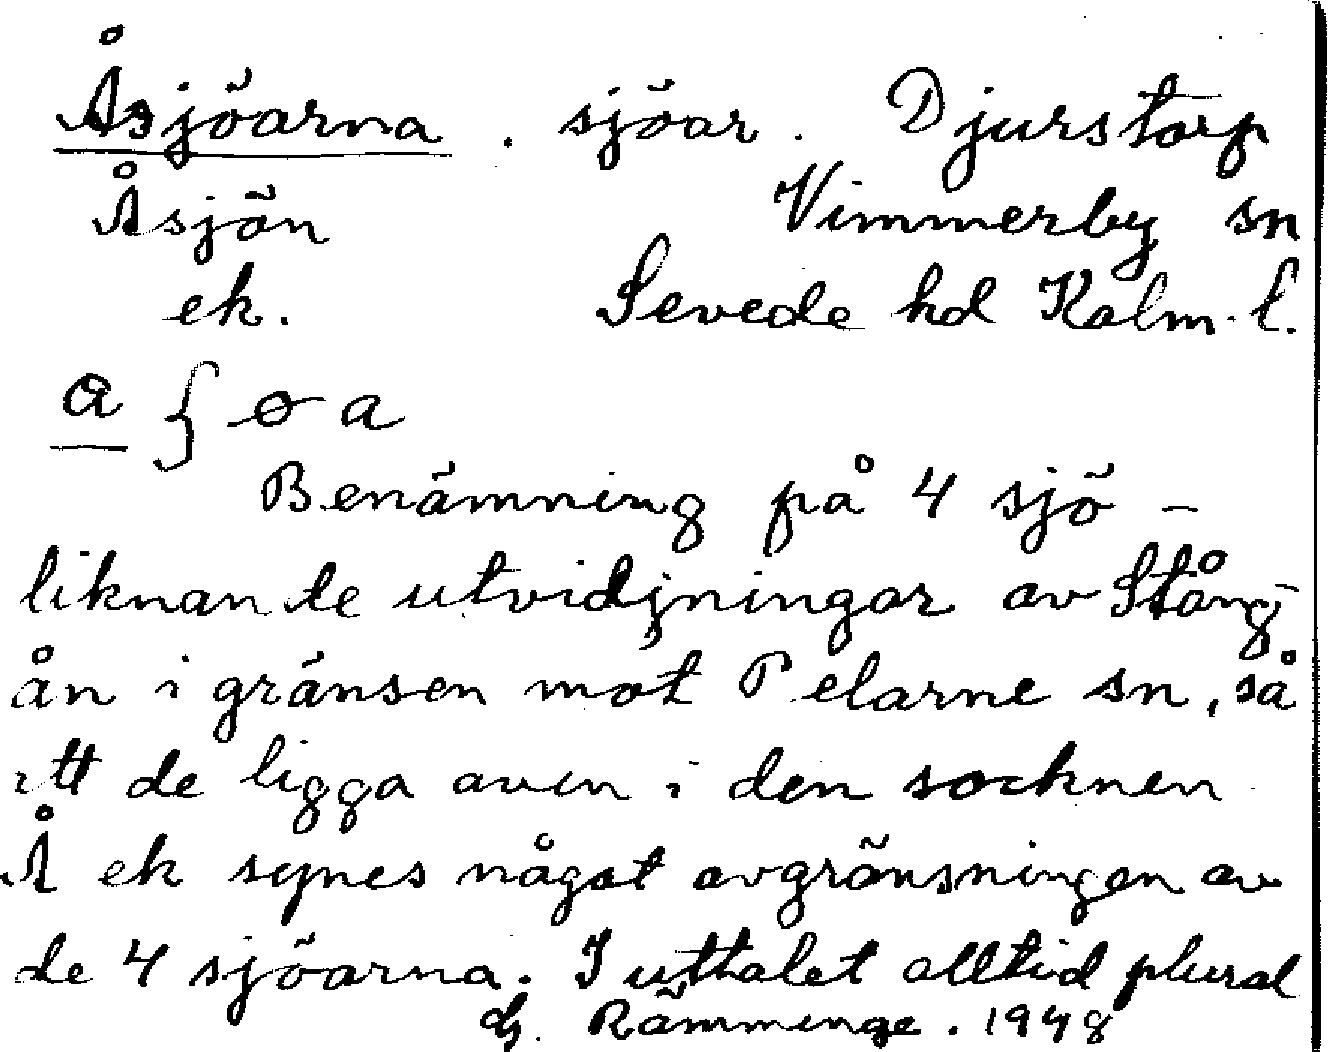 Åsjöarna . sjöar . Djurstorp
Åsjön Vimmerby sn
ek. Sevede hd Kalm. l.
a
Benämning på 4 sjö-
liknande utvidjningar av Stång-
ån i gränsen mot Pelarne sn, så
att de ligga även i den socknen
Å ek synes något avgränsningen av
de 4 sjöarna. I uttalet alltid plural
G. Rämminge. 1948